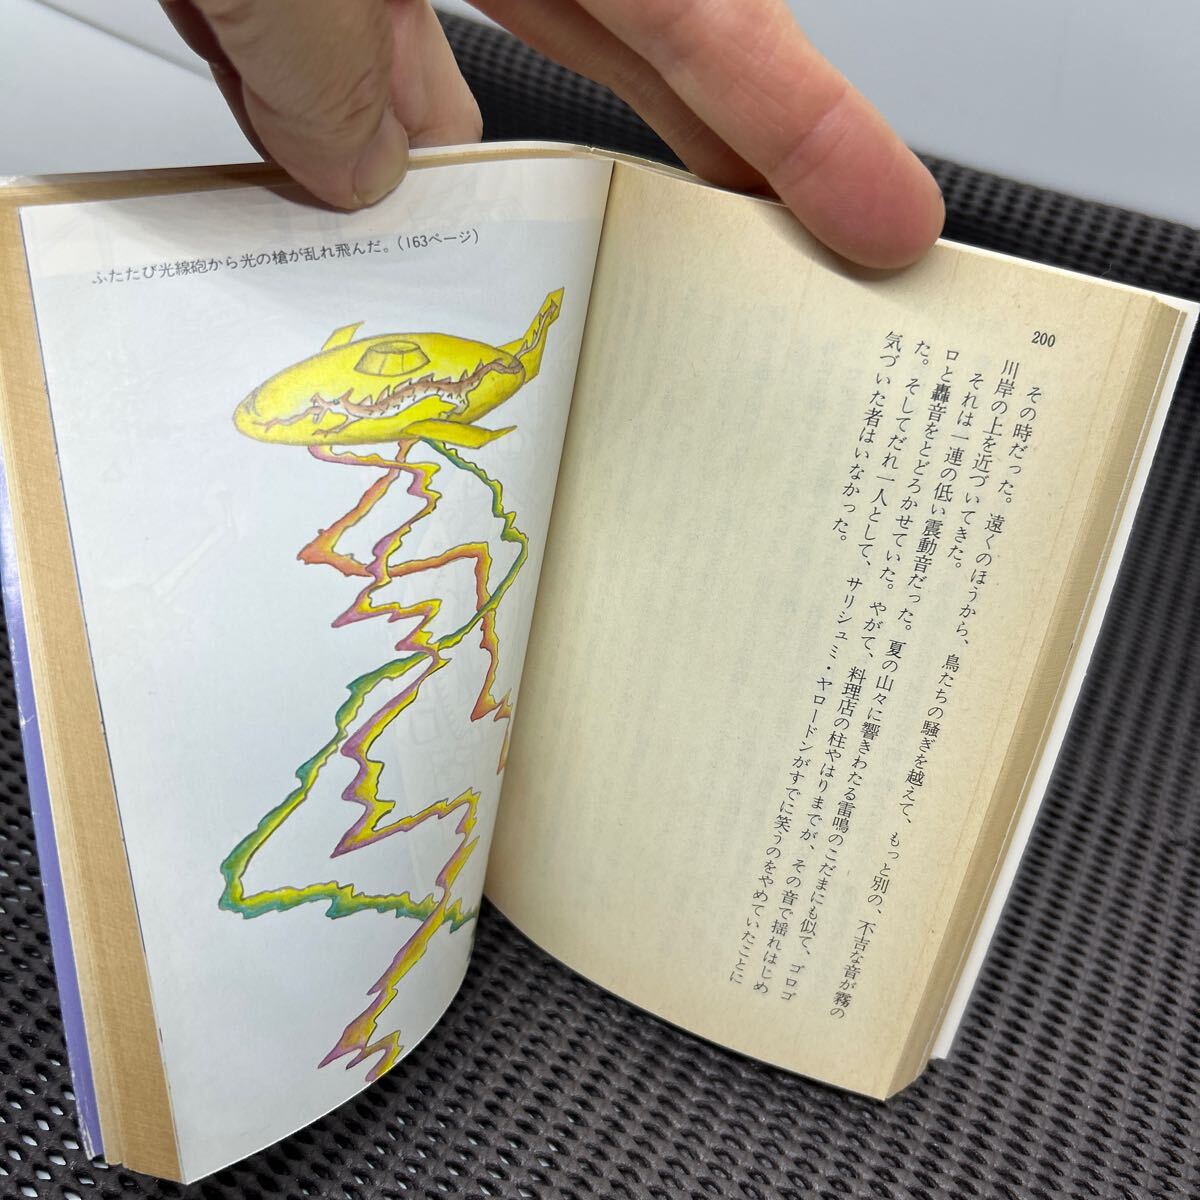 ふたたび光線砲から光の槍が乱れ飛んだ。(163ページ)
200
その時だった。遠くのほうから、鳥たちの騒ぎを越えて、もっと別の、不吉な音が霧の
川岸の上を近づいてきた。
それは一連の低い震動音だった。夏の山々に響きわたる雷鳴のこだまにも似て、ゴロゴ
ロと轟音をとどろかせていた。やがて、料理店の柱やはりまでが、その音で揺れはじめ
た。そしてだれ一人として、サリシュミ・ヤロードンがすでに笑うのをやめていたことに
気づいた者はいなかった。